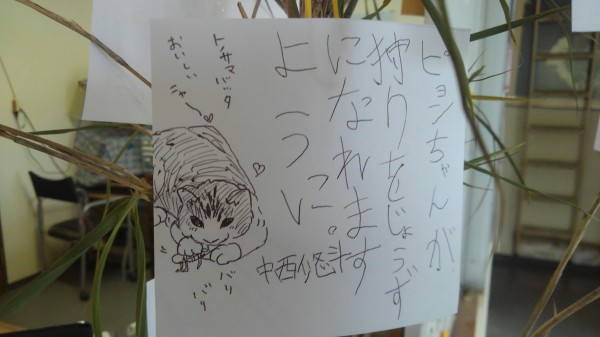 ピョンちゃんが
狩りをじょうず
になれます
ように。
中西悠斗
トノサマバッタ
おいしい
ニャ〜
バリ
バリ